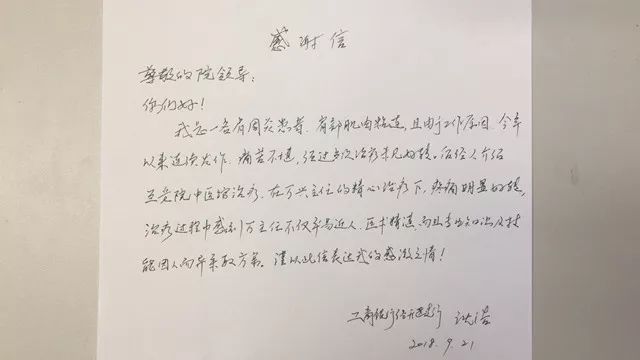 感谢信
尊敬的院领导:
你们好!
我是一名肩周炎患者、肩部肌肉粘连,且由于工作原因,今年
以来连续发作,痛苦不堪,经过多次治疗未见好转。后经人介绍
至贵院中医馆治疗,在万兴主任的精心治疗下,疼痛明显好转,
治疗过程中感到万主任不仅平易近人,医术精湛,而且专业知识及技
能因人而异采取方案。谨以此信表达我的感激之情!
工商银行经开支行
2018.9.21